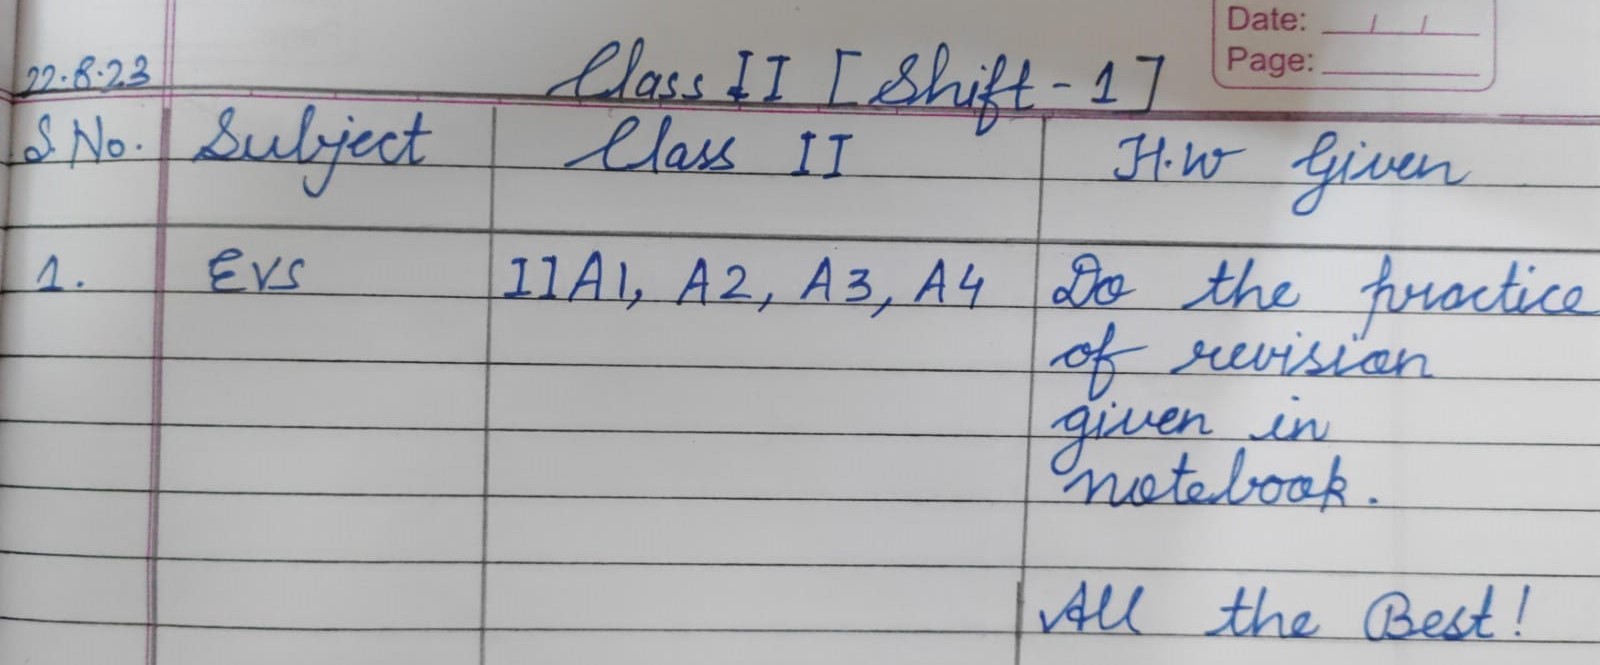 Date: / /
Page:
22.8.23 Class II [Shift-1]
S.No. Subject Class II H.W Given
1. EVS IIA1, A2, A3, A4 Do the practice
of revision
given in
notebook.
All the Best!